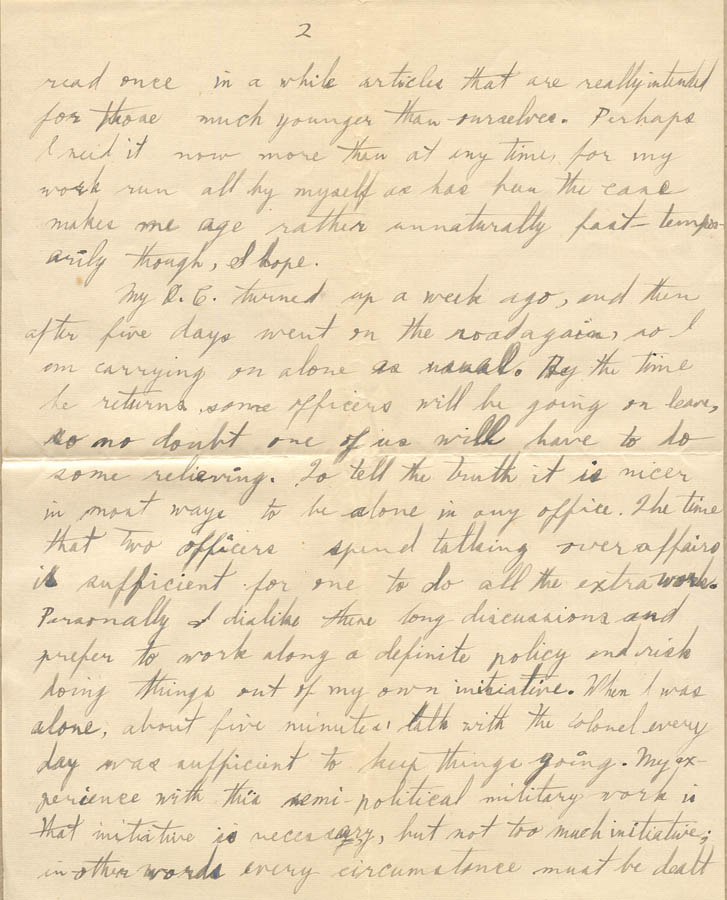 2
read once in a while articles that are really intended
for those much younger than ourselves. Perhaps
I need it now more than at any time, for my
work run all by myself as has been the case
makes me age rather unnaturally fast - tempor-
arily though, I hope.
My O. C. turned up a week ago, and then
after five days went on the road again, so I
am carrying on alone as usual. By the time
he returns some officers will be going on leave,
so no doubt one of us will have to do
some relieving. To tell the truth it is nicer
in most ways to be alone in any office. The time
that two officers spend talking over affairs
is sufficient for one to do all the extra work.
Personally I dislike these long discussions and
prefer to work along a definite policy and risk
doing things out of my own initiative. When I was
alone, about five minutes' talk with the Colonel every
day was sufficient to keep things going. My ex-
perience with this semi-political military work is
that initiative is necessary, but not too much initiative;
in other words every circumstance must be dealt